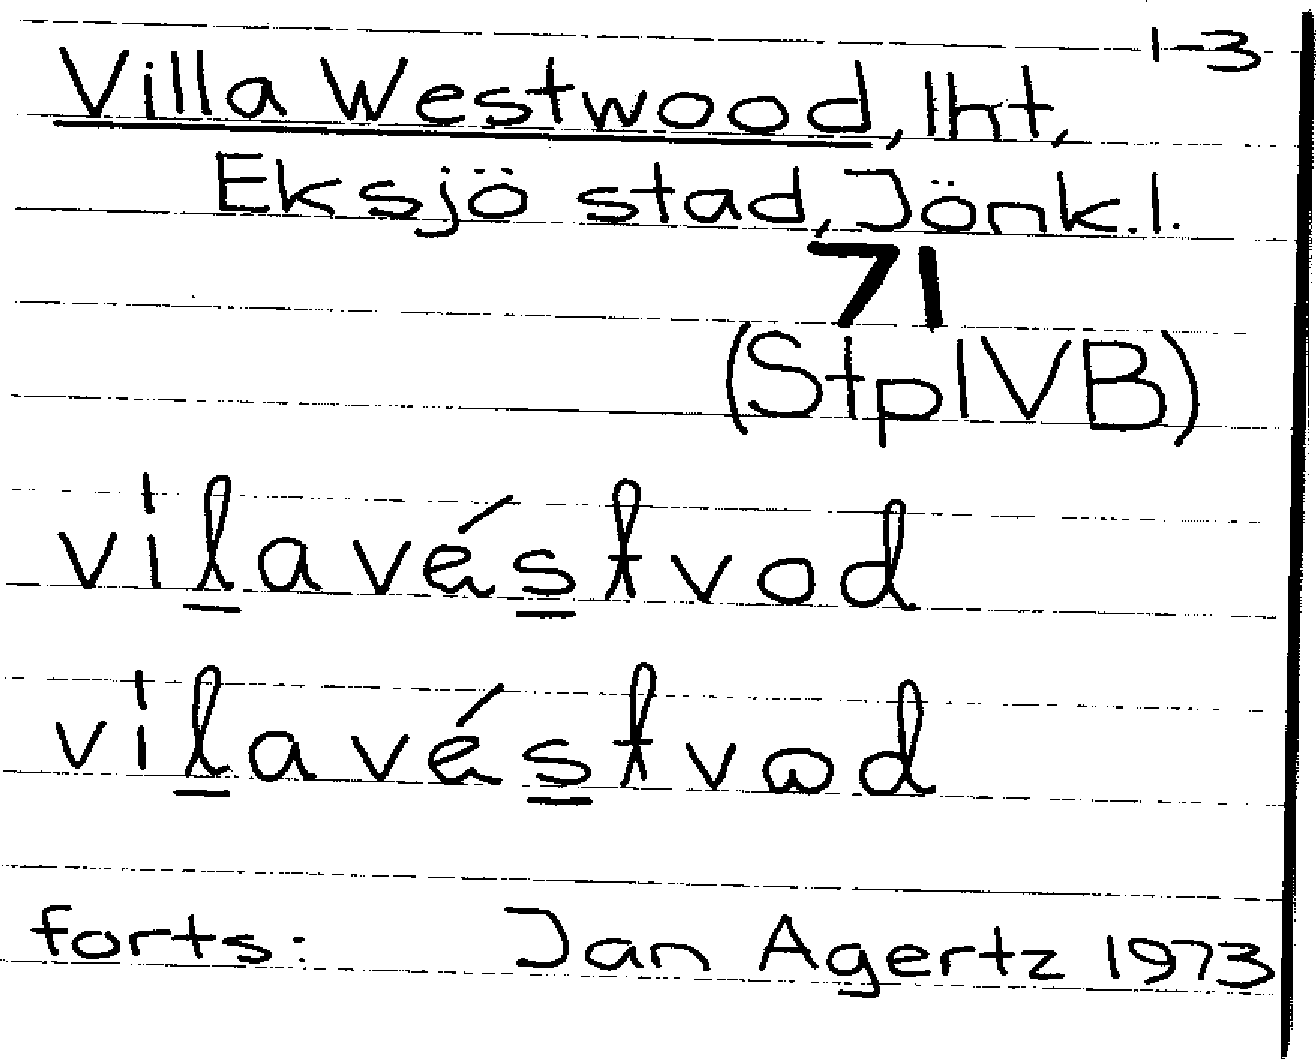 1-3
Villa Westwood, lht,
Eksjö stad, Jönk.l.
71
(StplVB)
vilavéstvod
vilavéstvωd
forts: Jan Agertz 1973